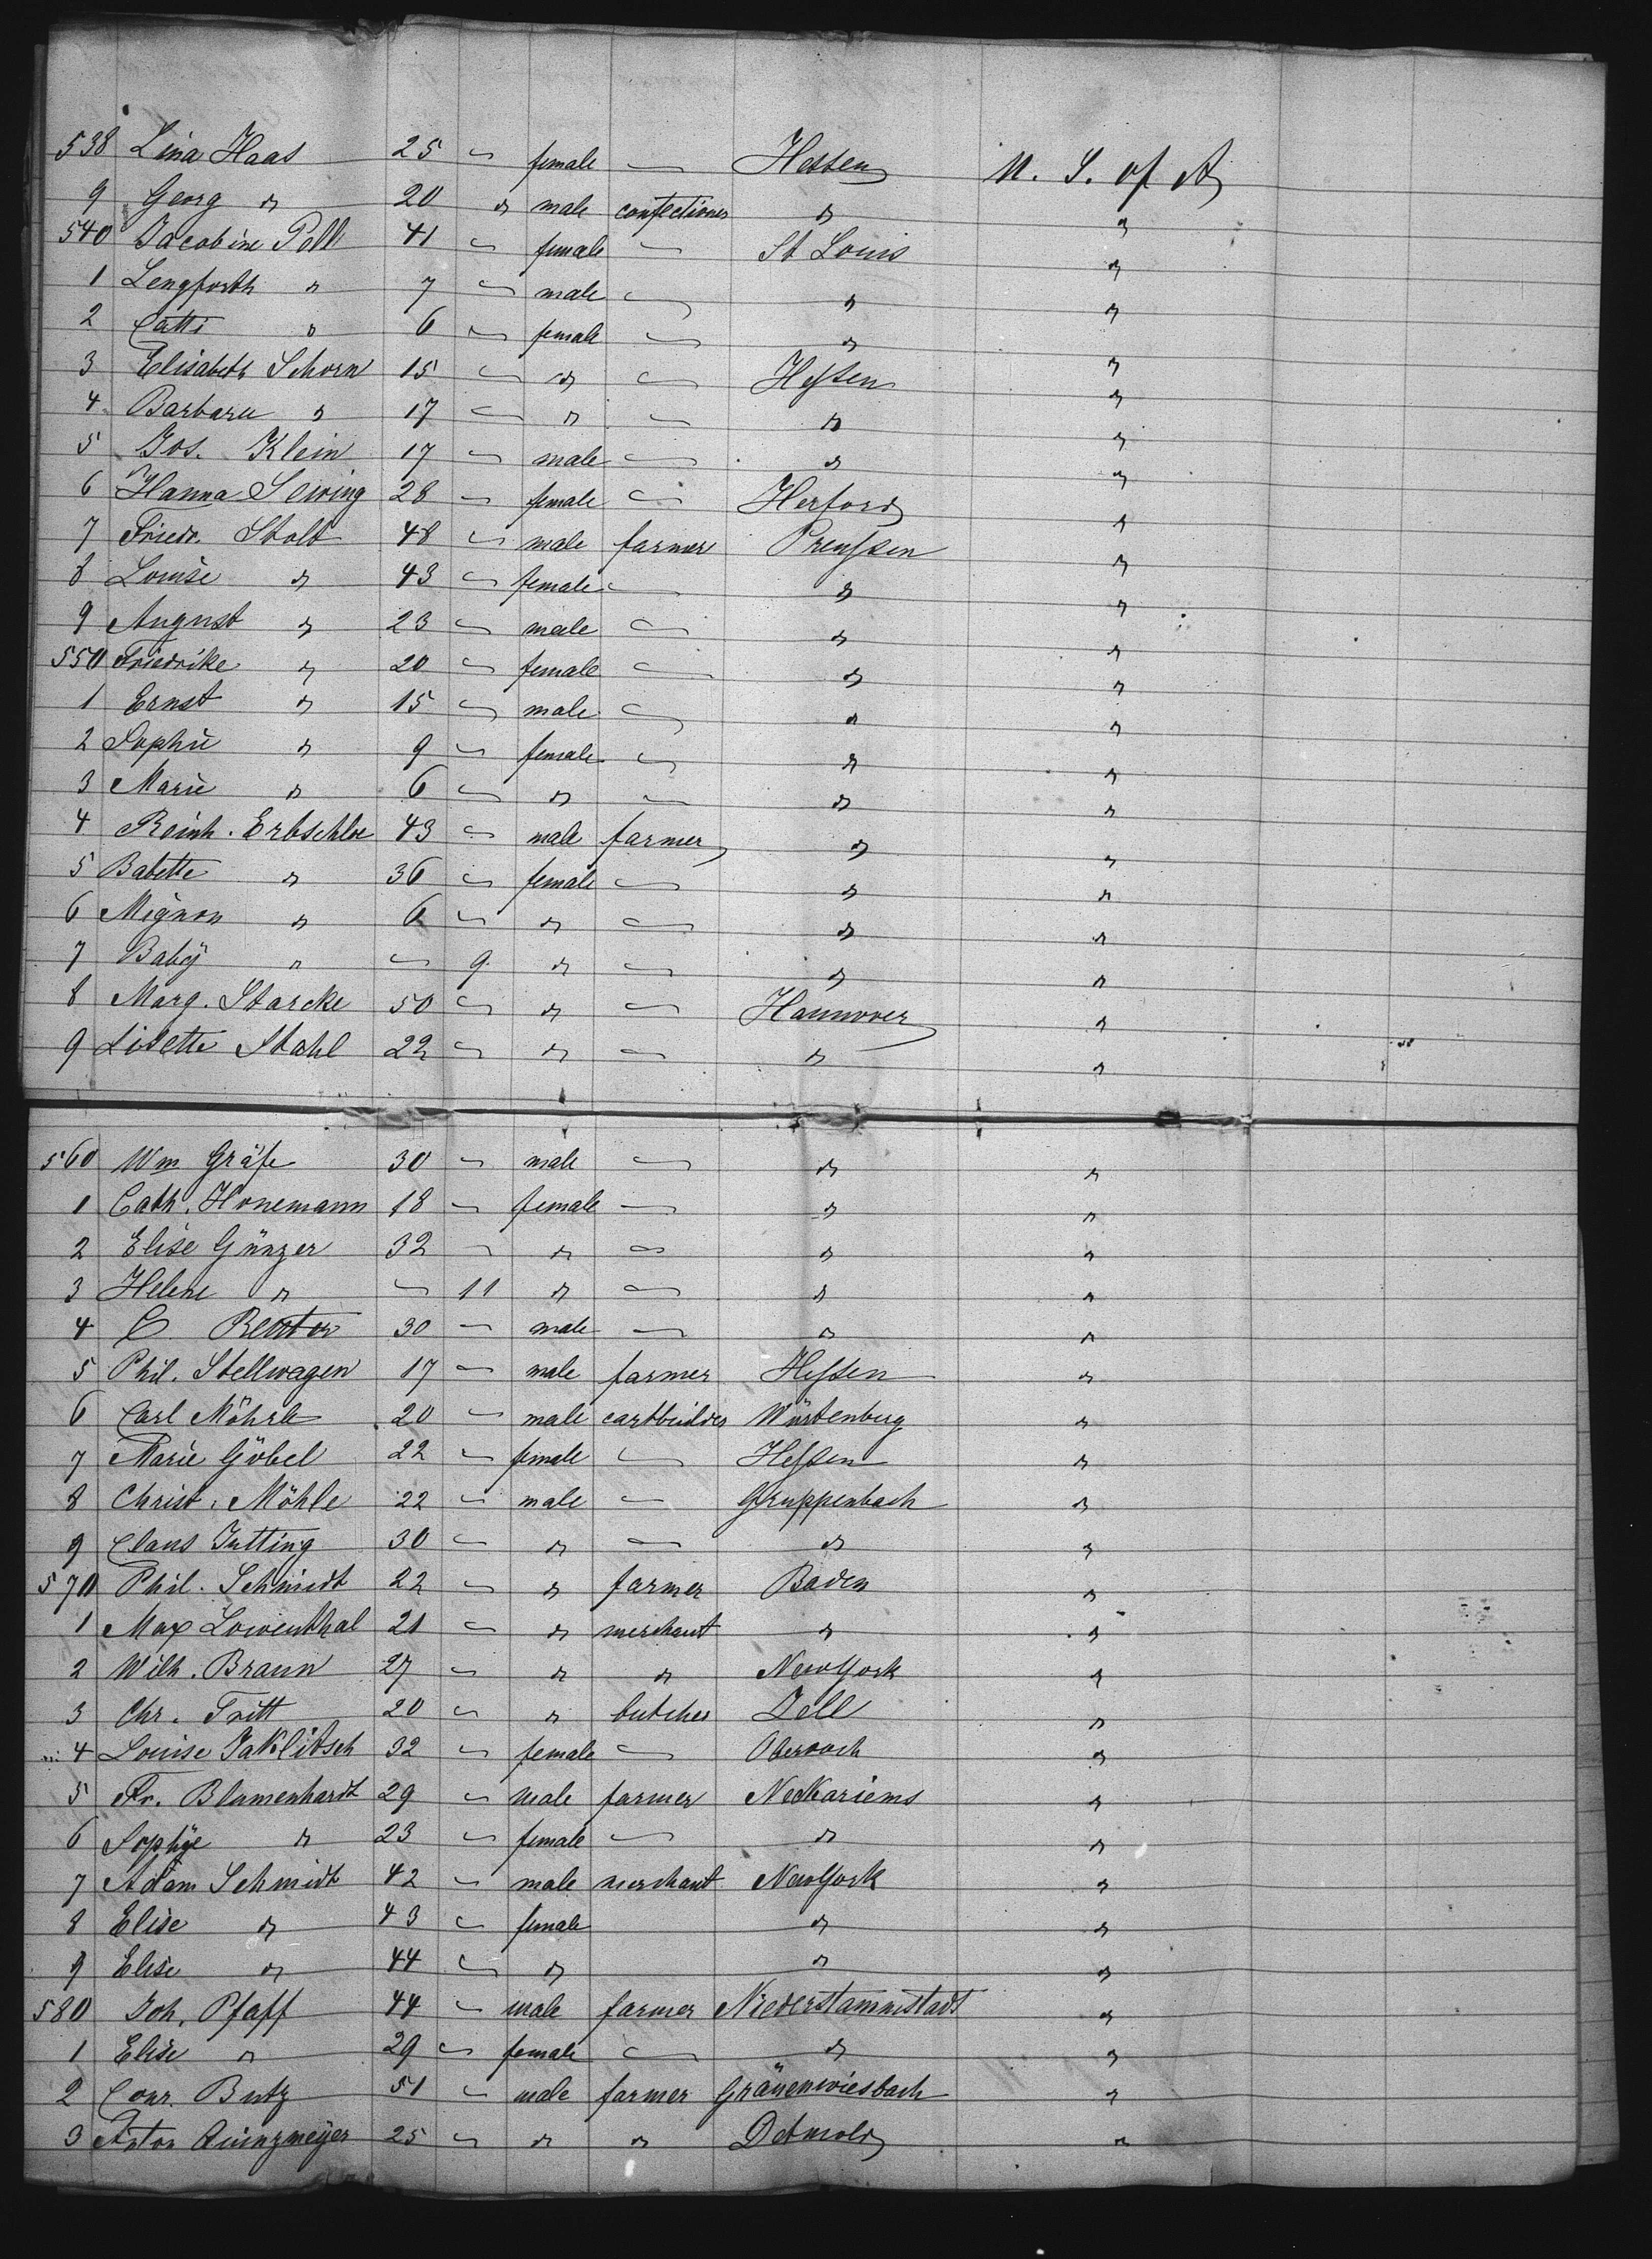 538 Lina Haas 25 — female — Hessen U. S. of A
9 Georg " 20 " male confectioner " "
540 Jacobine Poll 41 — female — St Louis "
1 Lengforth " 7 — male — " "
2 Catti " 6 — female — " "
3 Elisabeth Schorn 15 — " — Hessen "
4 Barbara " 17 — " — " "
5 Jos. Klein 17 — male — " "
6 Hanna Sewing 28 — female — Herford "
7 Friedr. Stolt 48 — male farmer Preussen "
8 Louise " 43 — female — " "
9 August " 23 — male — " "
550 Friedrike " 20 — female — " "
1 Ernst " 15 — male — " "
2 Sophie " 9 — female — " "
3 Marie " 6 — " — " "
4 Reinh. Erbschloe 43 — male farmer " "
5 Babette " 36 — female — " "
6 Mignon " 6 — " — " "
7 Baby " — 9 " — " "
8 Marg. Starcke 50 — " — Hannover "
9 Lisette Stahl 22 — " — " "
560 Wm Gräfe 30 — male — " "
1 Cath. Honemann 18 — female — " "
2 Elise Günzer 32 — " — " "
3 Helene " — 11 " — " "
4 C 30 — male — " "
5 Phil. Stellwagen 17 — male farmer Hessen "
6 Carl Möhrle 20 — male cartbuilder Würtenburg "
7 Marie Göbel 22 — female — Hessen "
8 Christ. Möhle 22 — male — Gruppenbach "
9 Claus Jutting 30 — " — " "
570 Phil. Schmidt 22 — " farmer Baden "
1 Max Lowenthal 21 — " merchant " "
2 Wilh. Braun 27 — " " NewYork "
3 Chr. Tritt 20 — " butcher Zell "
4 Louise Jaklitsch 32 — female — "
5 Fr. Blumenhardt 29 — male farmer Neckariems "
6 Sophye " 23 — female — " "
7 Adam Schmidt 42 — male merchant NewYork "
8 Elise " 43 — female " "
9 Elise " 44 — " " "
580 Joh. Pfaff 44 — male farmer Niederstammstadt "
1 Elise " 29 — female — " "
2 Conr. Butz 51 — male farmer Gräuenwiesbach "
3 Anton 25 — " " Detmold "